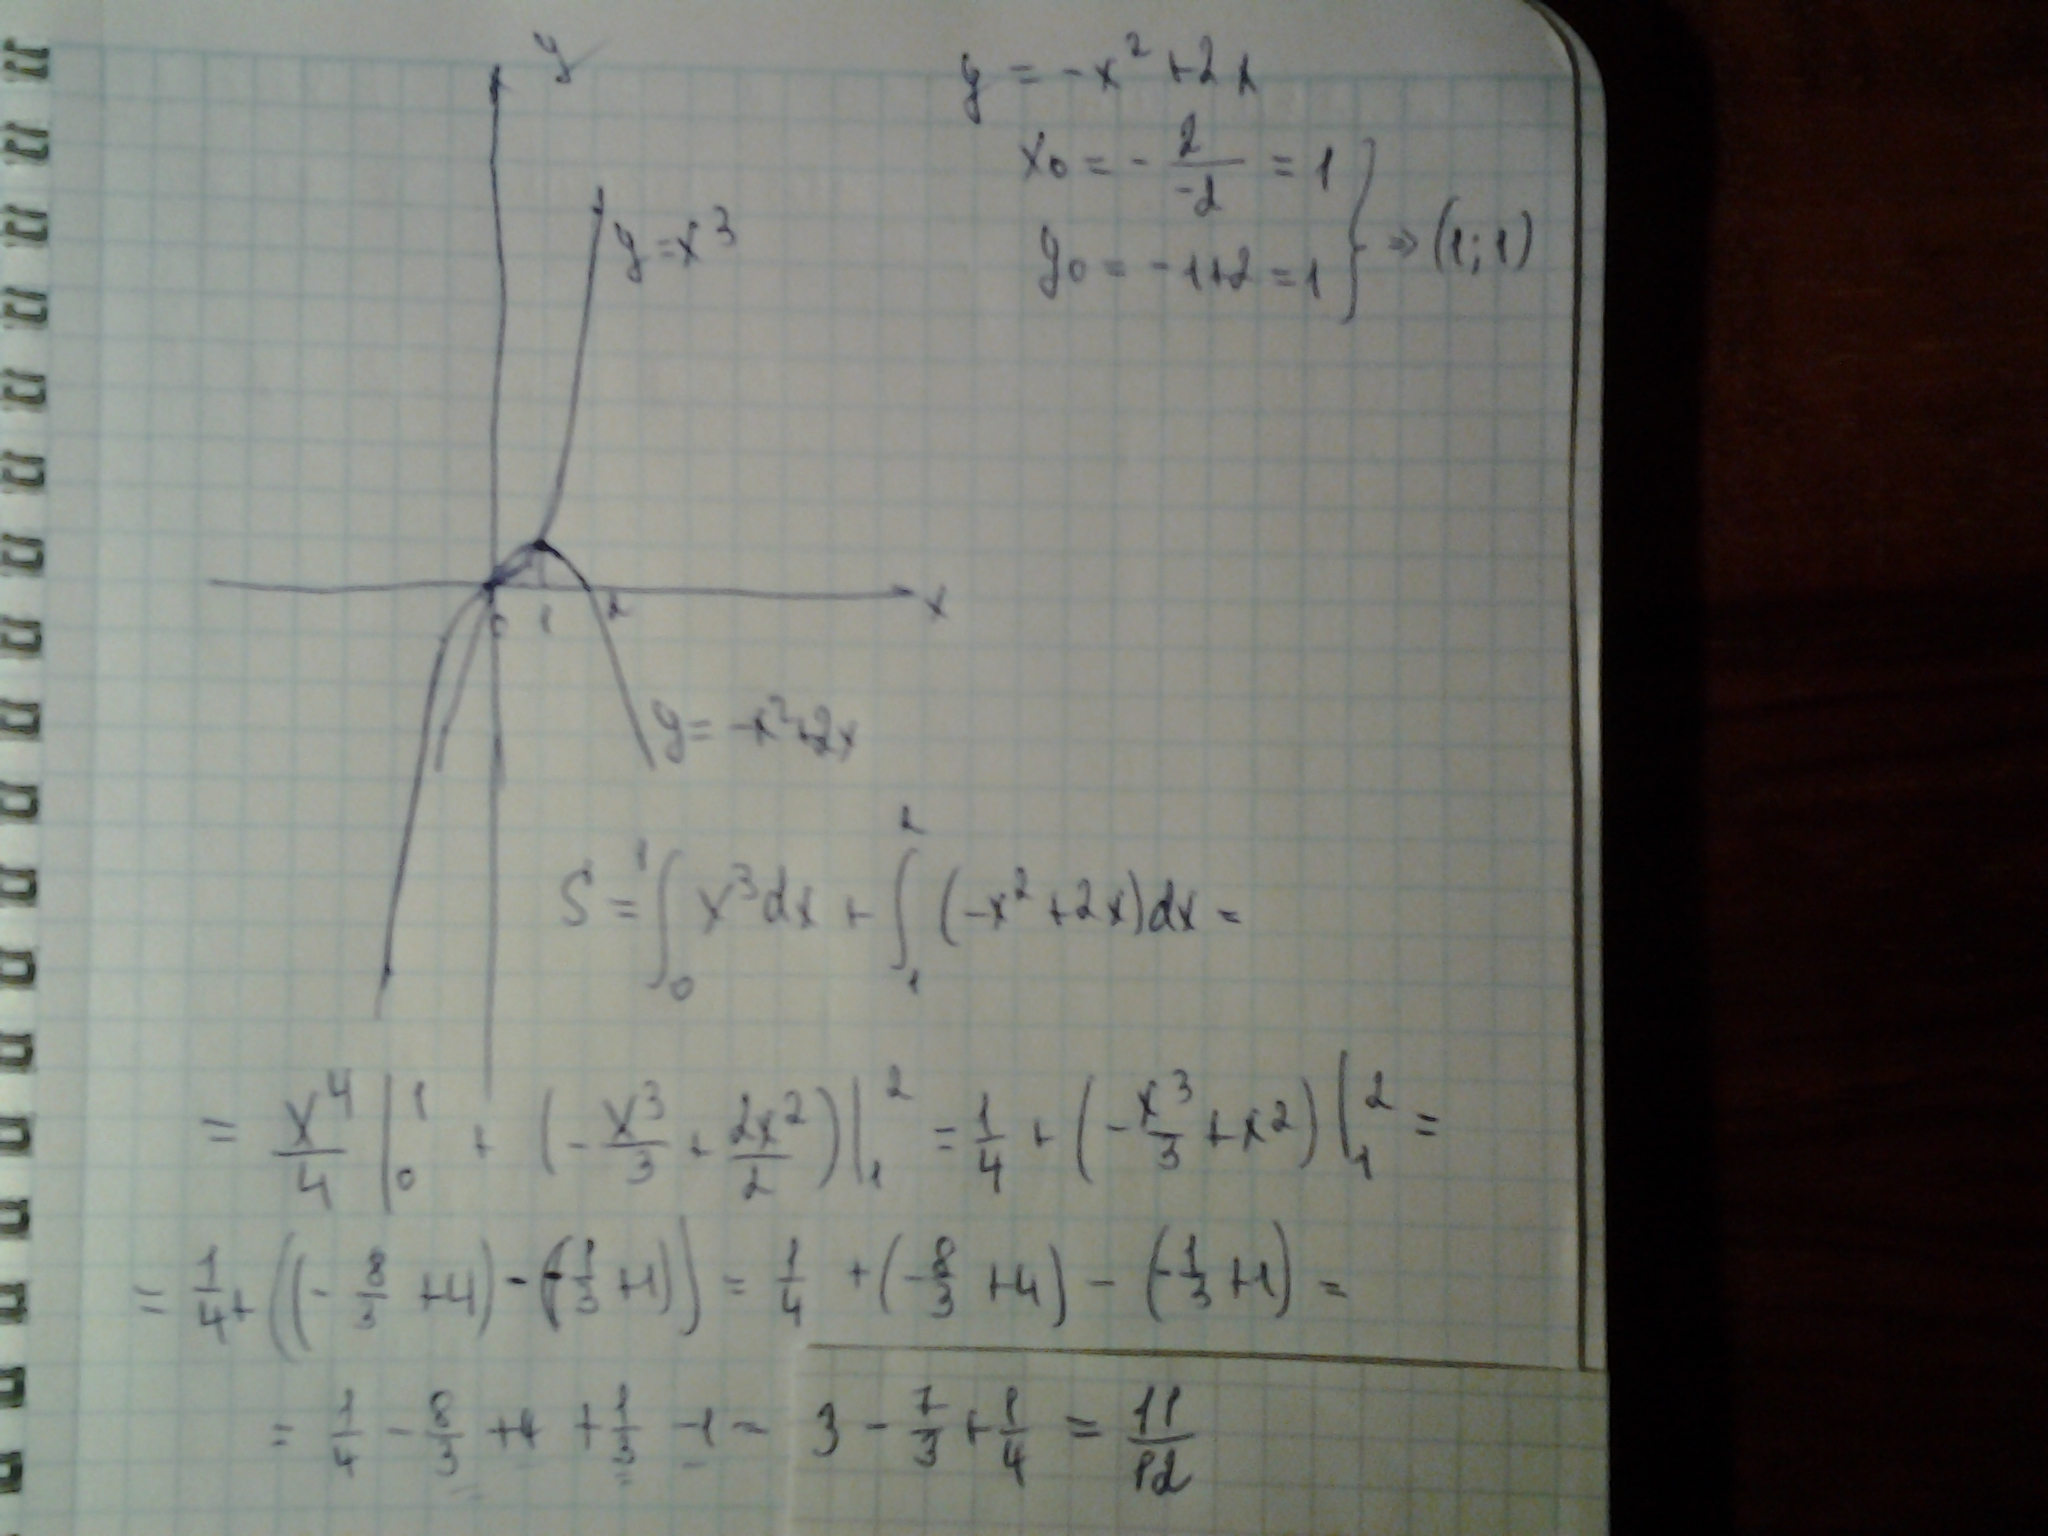 y
y = -x² + 2x
x₀ = - 2/-2 = 1
y₀ = -1+2 = 1 } ⇒ (1; 1)
y = x³
0 1 2 x
y = -x²+2x
S = ∫₀¹ x³dx + ∫₁² (-x² + 2x)dx =
= x⁴/4 |₀¹ + (- x³/3 + 2x²/2)|₁² = 1/4 + (- x³/3 + x²)|₁² =
= 1/4 + ((- 8/3 + 4) - (- 1/3 + 1)) = 1/4 + (- 8/3 + 4) - (- 1/3 + 1) =
= 1/4 - 8/3 + 4 + 1/3 - 1 = 3 - 7/3 + 1/4 = 11/12